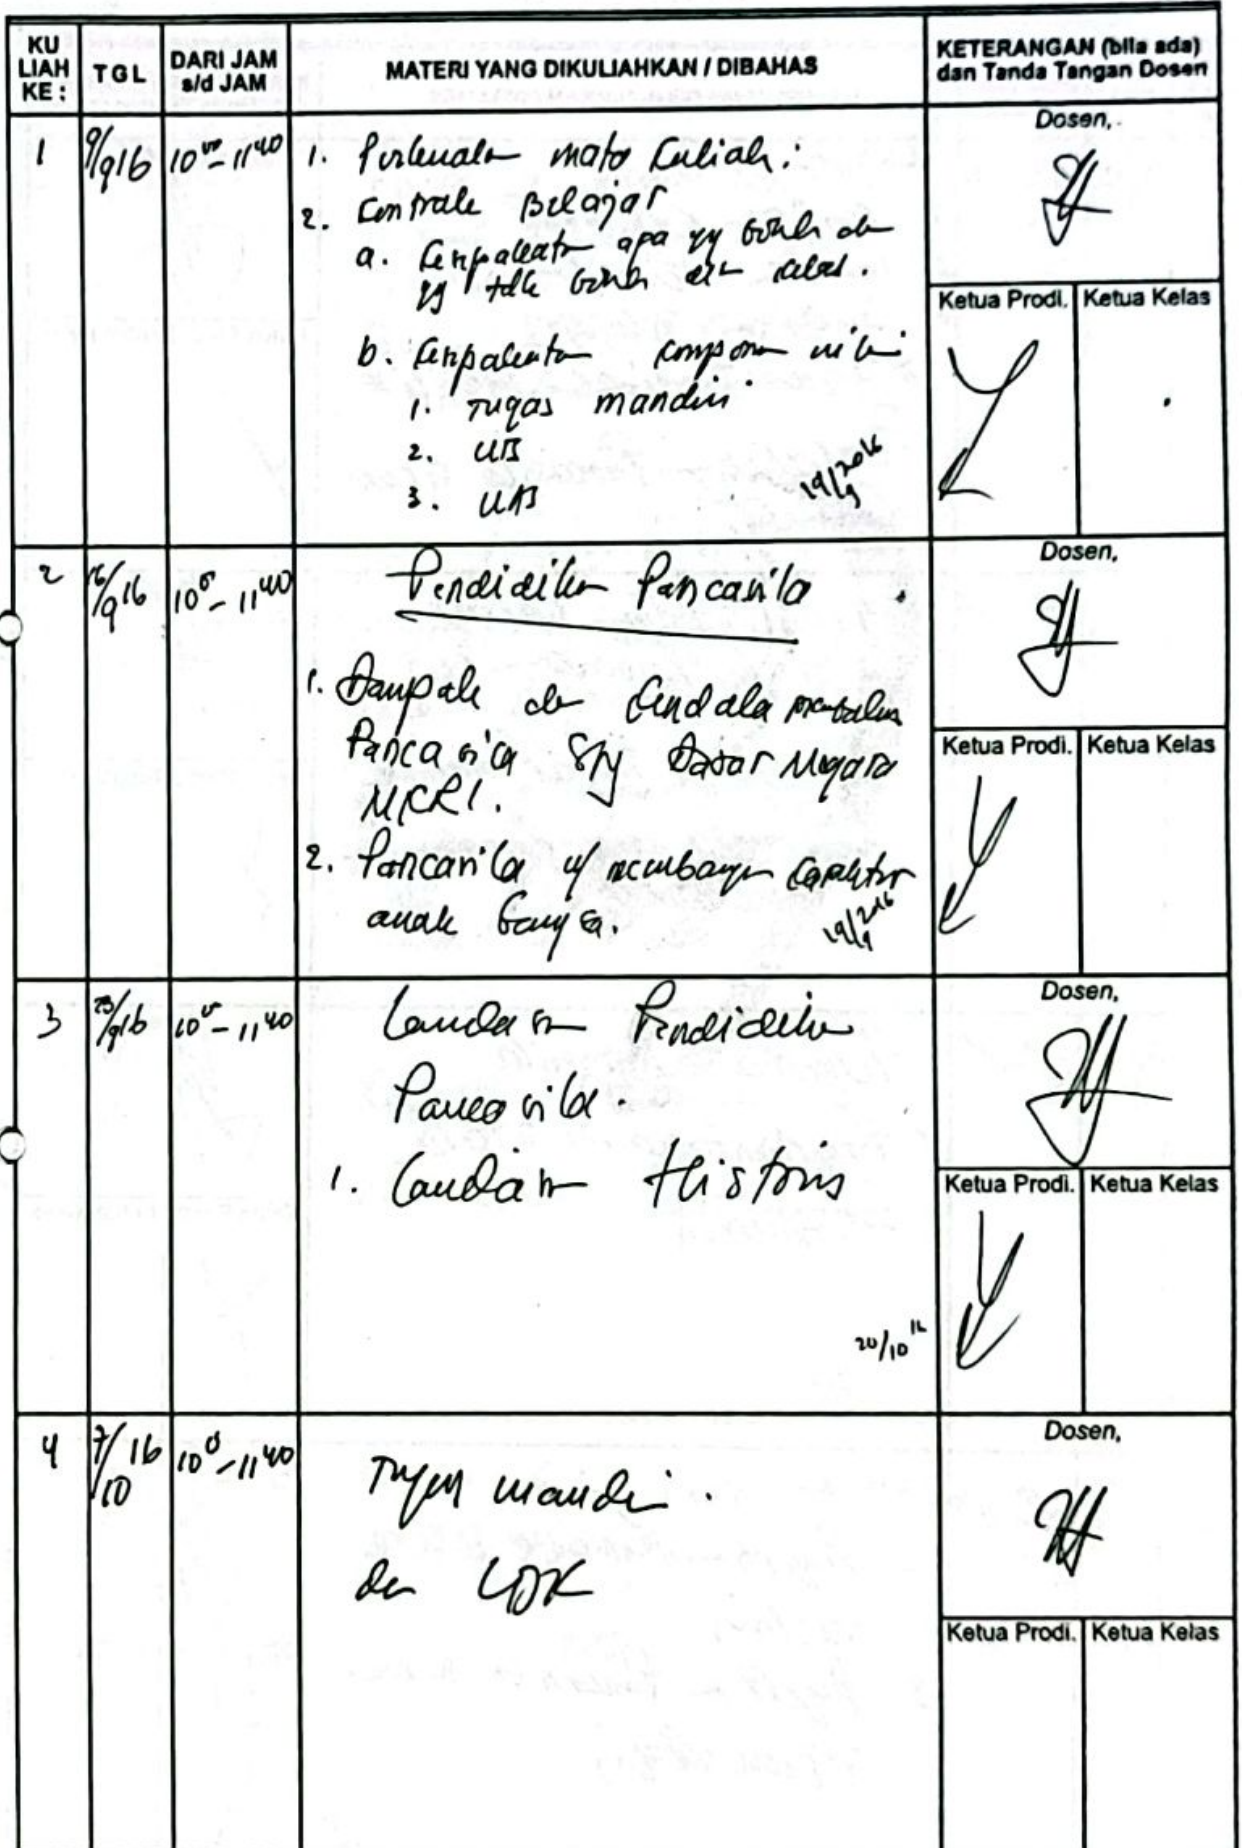 KU LIAH KE :
TGL
DARI JAM s/d JAM
MATERI YANG DIKULIAHKAN / DIBAHAS
KETERANGAN (bila ada) dan Tanda Tangan Dosen
1
9/9 16
10 00 - 11 40
1. Perkenalan mata kuliah :
2. Kontrak Belajar
a. Kesepakatan apa yg boleh dn
yg tdk boleh dlm kelas.
b. Kesepakatan komponen nilai
1. Tugas mandiri
2. UTS
3. UAS
19/9 2016
Dosen,
Ketua Prodi.
Ketua Kelas
2
16/9 16
10 0 - 11 40
Pendidikan Pancasila
1. Dampak dn kendala
Pancasila sbg Dasar Negara
NKRI.
2. Pancasila u/ membangun karakter
anak bangsa.
19/9 2016
Dosen,
Ketua Prodi.
Ketua Kelas
3
23/9 16
10 0 - 11 40
Landasan Pendidikan
Pancasila.
1. Landasan Historis
20/10 16
Dosen,
Ketua Prodi.
Ketua Kelas
4
7/10 16
10 0 - 11 40
Tugas mandiri.
dn LDK
Dosen,
Ketua Prodi.
Ketua Kelas